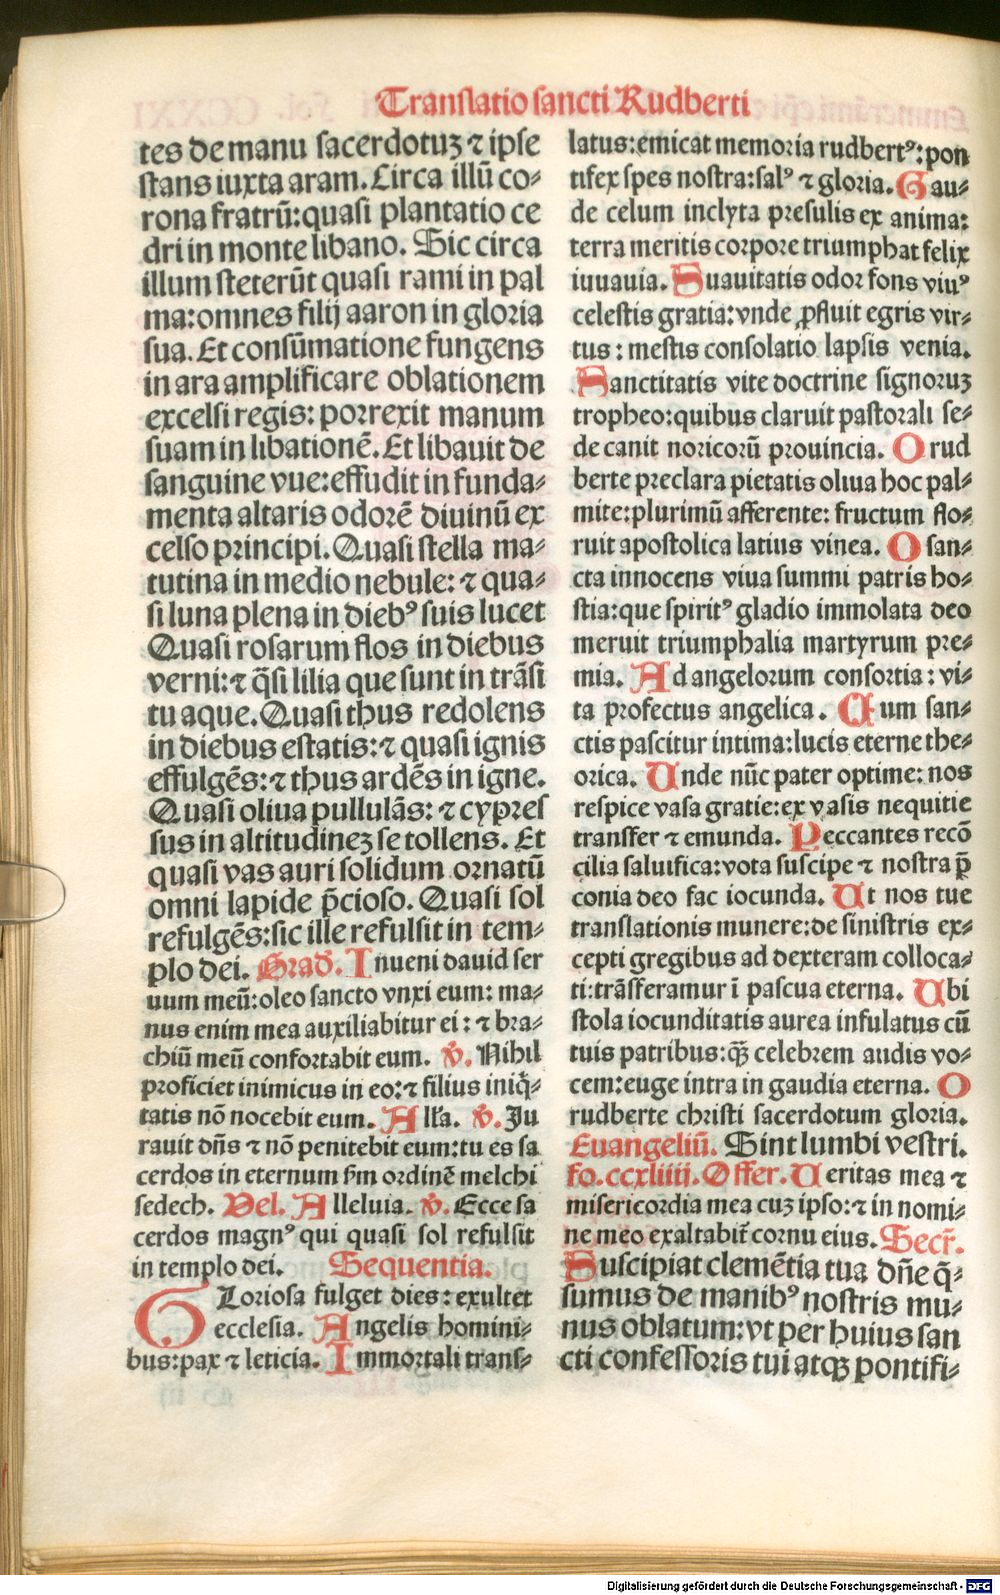 Translatio sancti Rudberti
tes de manu sacerdotuʒ ⁊ ipse
stans iuxta aram. Circa illū co⸗
rona fratrū: quasi plantatio ce
dri in monte libano. Sic circa
illum steterūt quasi rami in pal
ma: omnes filij aaron in gloria
sua. Et consūmatione fungens
in ara amplificare oblationem
excelsi regis: porrexit manum
suam in libationē. Et libauit de
sanguine vue: effudit in funda⸗
menta altaris odorē diuinū ex
celso principi. Quasi stella ma⸗
tutina in medio nebule: ⁊ qua⸗
si luna plena in diebꝰ suis lucet
Quasi rosarum flos in diebus
verni: ⁊ q̄si lilia que sunt in trāsi
tu aque. Quasi thus redolens
in diebus estatis: ⁊ quasi ignis
effulgēs: ⁊ thus ardēs in igne.
Quasi oliua pullulās: ⁊ cypres
sus in altitudineʒ se tollens. Et
quasi vas auri solidum ornatū
omni lapide p̄cioso. Quasi sol
refulgēs: sic ille refulsit in tem⸗
plo dei. Grad̄. Inueni dauid ser
uum meū: oleo sancto vnxi eum: ma⸗
nus enim mea auxiliabitur ei: ⁊ bra⸗
chiū meū confortabit eum. ℣. Nihil
proficiet inimicus in eo: ⁊ filius iniq̄⸗
tatis nō nocebit eum. Alľa. ℣. Ju
rauit dn̄s ⁊ nō penitebit eum: tu es sa
cerdos in eternum ẜm ordinē melchi
sedech. Vel. Alleluia. ℣. Ecce sa
cerdos magnꝰ qui quasi sol refulsit
in templo dei. Sequentia.
Gloriosa fulget dies: exultet
ecclesia. Angelis homini⸗
bus: pax ⁊ leticia. Immortali trans⸗
latus: emicat memoria rudbertꝰ: pon
tifex spes nostra: salꝰ ⁊ gloria. Gau⸗
de celum inclyta presulis ex anima:
terra meritis corpore triumphat felix
iuuauia. Suauitatis odor fons viuꝰ
celestis gratia: vnde ꝓfluit egris vir⸗
tus: mestis consolatio lapsis venia.
Sanctitatis vite doctrine signoruʒ
tropheo: quibus claruit pastorali se⸗
de canit noricorū prouincia. O rud
berte preclara pietatis oliua hoc pal⸗
mite: plurimū afferente: fructum flo⸗
ruit apostolica latius vinea. O san⸗
cta innocens viua summi patris ho⸗
stia: que spiritꝰ gladio immolata deo
meruit triumphalia martyrum pre⸗
mia. Ad angelorum consortia: vi⸗
ta profectus angelica. Cum san⸗
ctis pascitur intima: lucis eterne the⸗
orica. Unde nūc pater optime: nos
respice vasa gratie: ex vasis nequitie
transfer ⁊ emunda. Peccantes recō
cilia saluifica: vota suscipe ⁊ nostra p̄
conia deo fac iocunda. Ut nos tue
translationis munere: de sinistris ex⸗
cepti gregibus ad dexteram colloca⸗
ti: trāsferamur ī pascua eterna. Ubi
stola iocunditatis aurea infulatus cū
tuis patribus: qꝫ̄ celebrem audis vo⸗
cem: euge intra in gaudia eterna. O
rudberte christi sacerdotum gloria.
Euangeliū. Sint lumbi vestri.
fo. ccxliiij. Offer. Ueritas mea ⁊
misericordia mea cuʒ ipso: ⁊ in nomi⸗
ne meo exaltabit̄ cornu eius. Secr̄.
Suscipiat clemētia tua dn̄e q̄⸗
sumus de manibꝰ nostris mu⸗
nus oblatum: vt per huius san
cti confessoris tui atqꝫ pontifi⸗
Digitalisierung gefördert durch die Deutsche Forschungsgemeinschaft - DFG